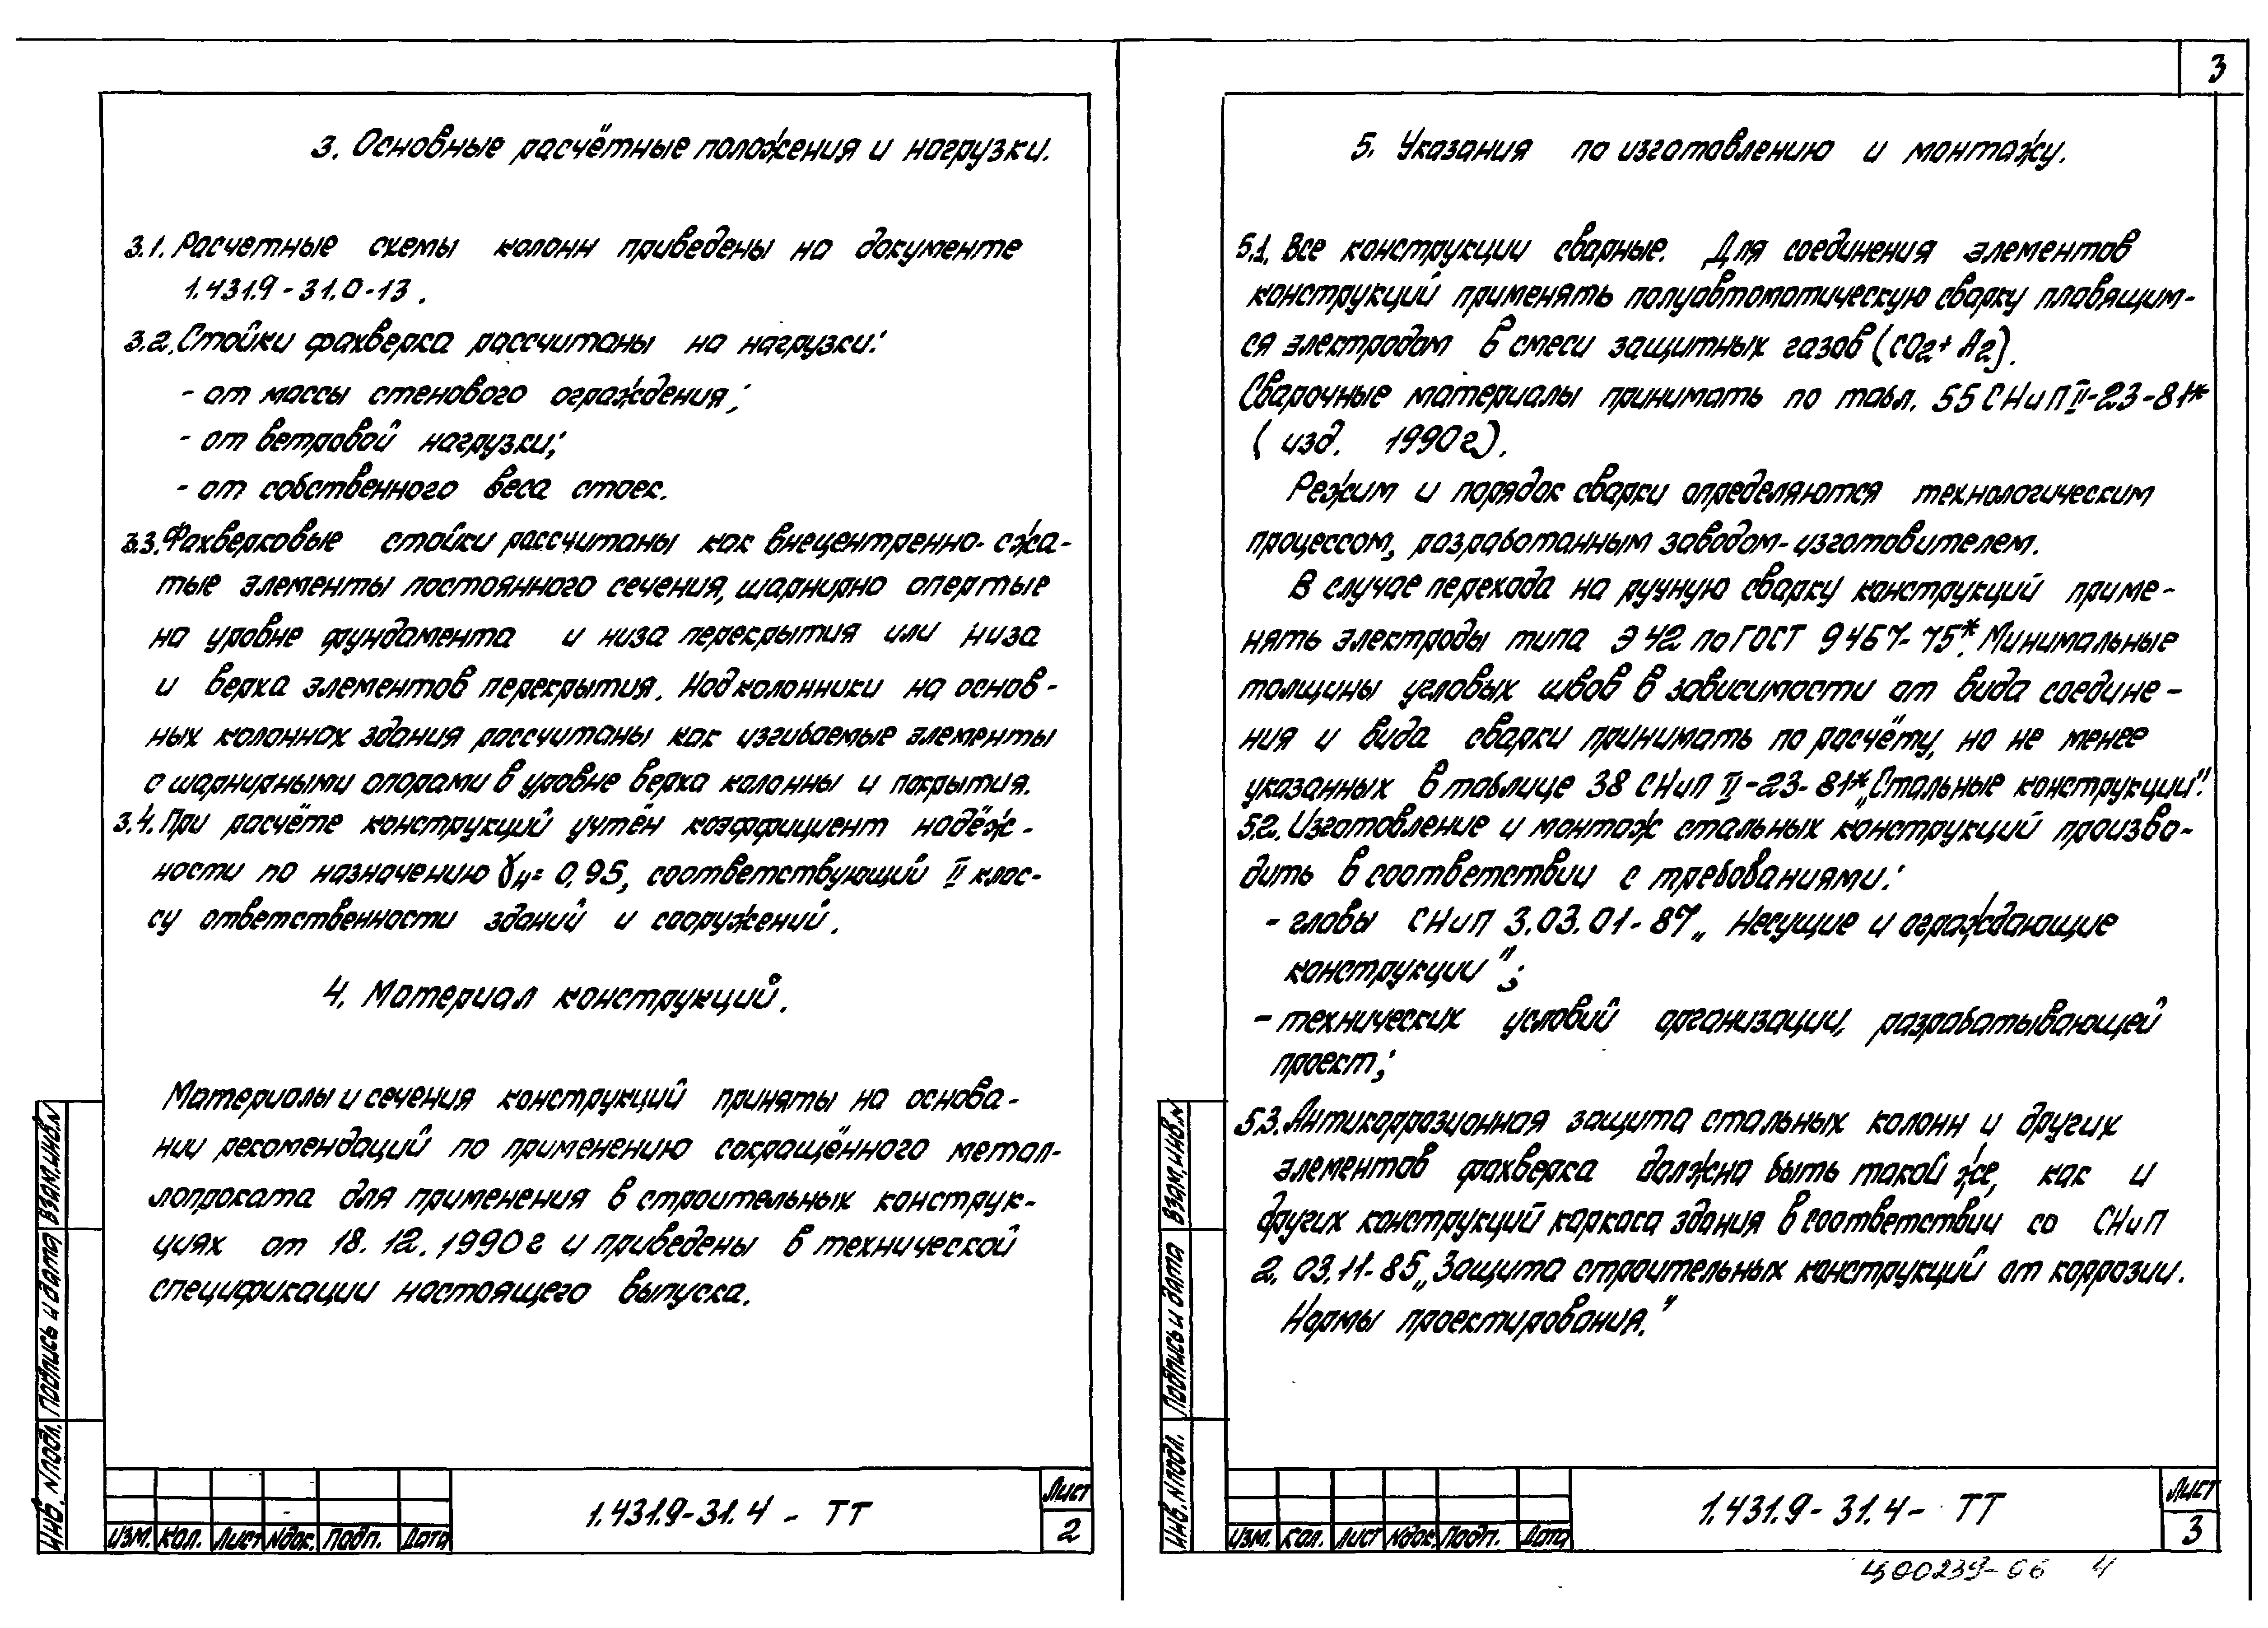 3. Основные расчётные положения и нагрузки.
3.1. Расчетные схемы колонн приведены на документе
1.431.9-31.0-13.
3.2. Стойки фахверка рассчитаны на нагрузки:
- от массы стенового ограждения;
- от ветровой нагрузки;
- от собственного веса стоек.
3.3. Фахверковые стойки рассчитаны как внецентренно-сжа-
тые элементы постоянного сечения, шарнирно опертые
на уровне фундамента и низа перекрытия или низа
и верха элементов перекрытия. Надколонники на основ-
ных колоннах здания рассчитаны как изгибаемые элементы
с шарнирными опорами в уровне верха колонны и покрытия.
3.4. При расчёте конструкций учтён коэффициент надёж-
ности по назначению γн= 0,95, соответствующий II клас-
су ответственности зданий и сооружений.
4. Материал конструкций.
Материалы и сечения конструкций приняты на основа-
нии рекомендаций по применению сокращённого метал-
лопроката для применения в строительных конструк-
циях от 18. 12. 1990 г и приведены в технической
спецификации настоящего выпуска.
Инв. N подл. Подпись и дата Взам. инв. N
Изм. Кол. Лист N док. Подп. Дата
1.431.9-31.4 - ТТ
Лист
2
3
5. Указания по изготовлению и монтажу.
5.1. Все конструкции сварные. Для соединения элементов
конструкций применять полуавтоматическую сварку плавящим-
ся электродом в смеси защитных газов (CO2+ Ar).
Сварочные материалы принимать по табл. 55 СНиП II-23-81*
( изд. 1990 г).
Режим и порядок сварки определяются технологическим
процессом, разработанным заводом-изготовителем.
В случае перехода на ручную сварку конструкций приме-
нять электроды типа Э 42 по ГОСТ 9467-75*. Минимальные
толщины угловых швов в зависимости от вида соедине-
ния и вида сварки принимать по расчёту, но не менее
указанных в таблице 38 СНиП II-23-81* „Стальные конструкции".
5.2. Изготовление и монтаж стальных конструкций произво-
дить в соответствии с требованиями:
- главы СНиП 3.03.01-87 „Несущие и ограждающие
конструкции";
- технических условий организации, разрабатывающей
проект;
5.3. Антикоррозионная защита стальных колонн и других
элементов фахверка должна быть такой же, как и
других конструкций каркаса здания в соответствии со СНиП
2.03.11-85 „Защита строительных конструкций от коррозии.
Нормы проектирования."
Инв. N подл. Подпись и дата Взам. инв. N
Изм. Кол. Лист N док. Подп. Дата
1.431.9-31.4 - ТТ
Лист
3
Ц00239-06 4